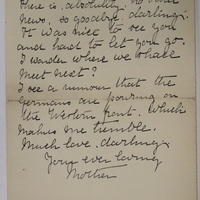 There is absolutely no other
news, so goodbye darling.
It was nice to see you
and hard to let you go.
I wonder where we shall
meet next?
I see a rumour that the
Germans are pouring on
the Western front. Which
makes me tremble.
Much love, darling,
Your ever loving
Mother